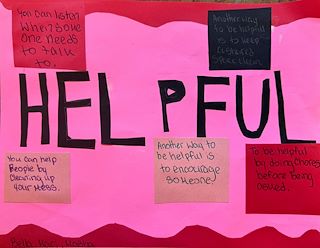 You can listen
when some
one needs
to talk
to.
Another way
to be helpful
is to help
HELPFUL
You can help
People by
Cleaning up
your mess.
Another way to
be helpful is
to encourage
someone!
To be helpful
by doing chores
before being
asked.